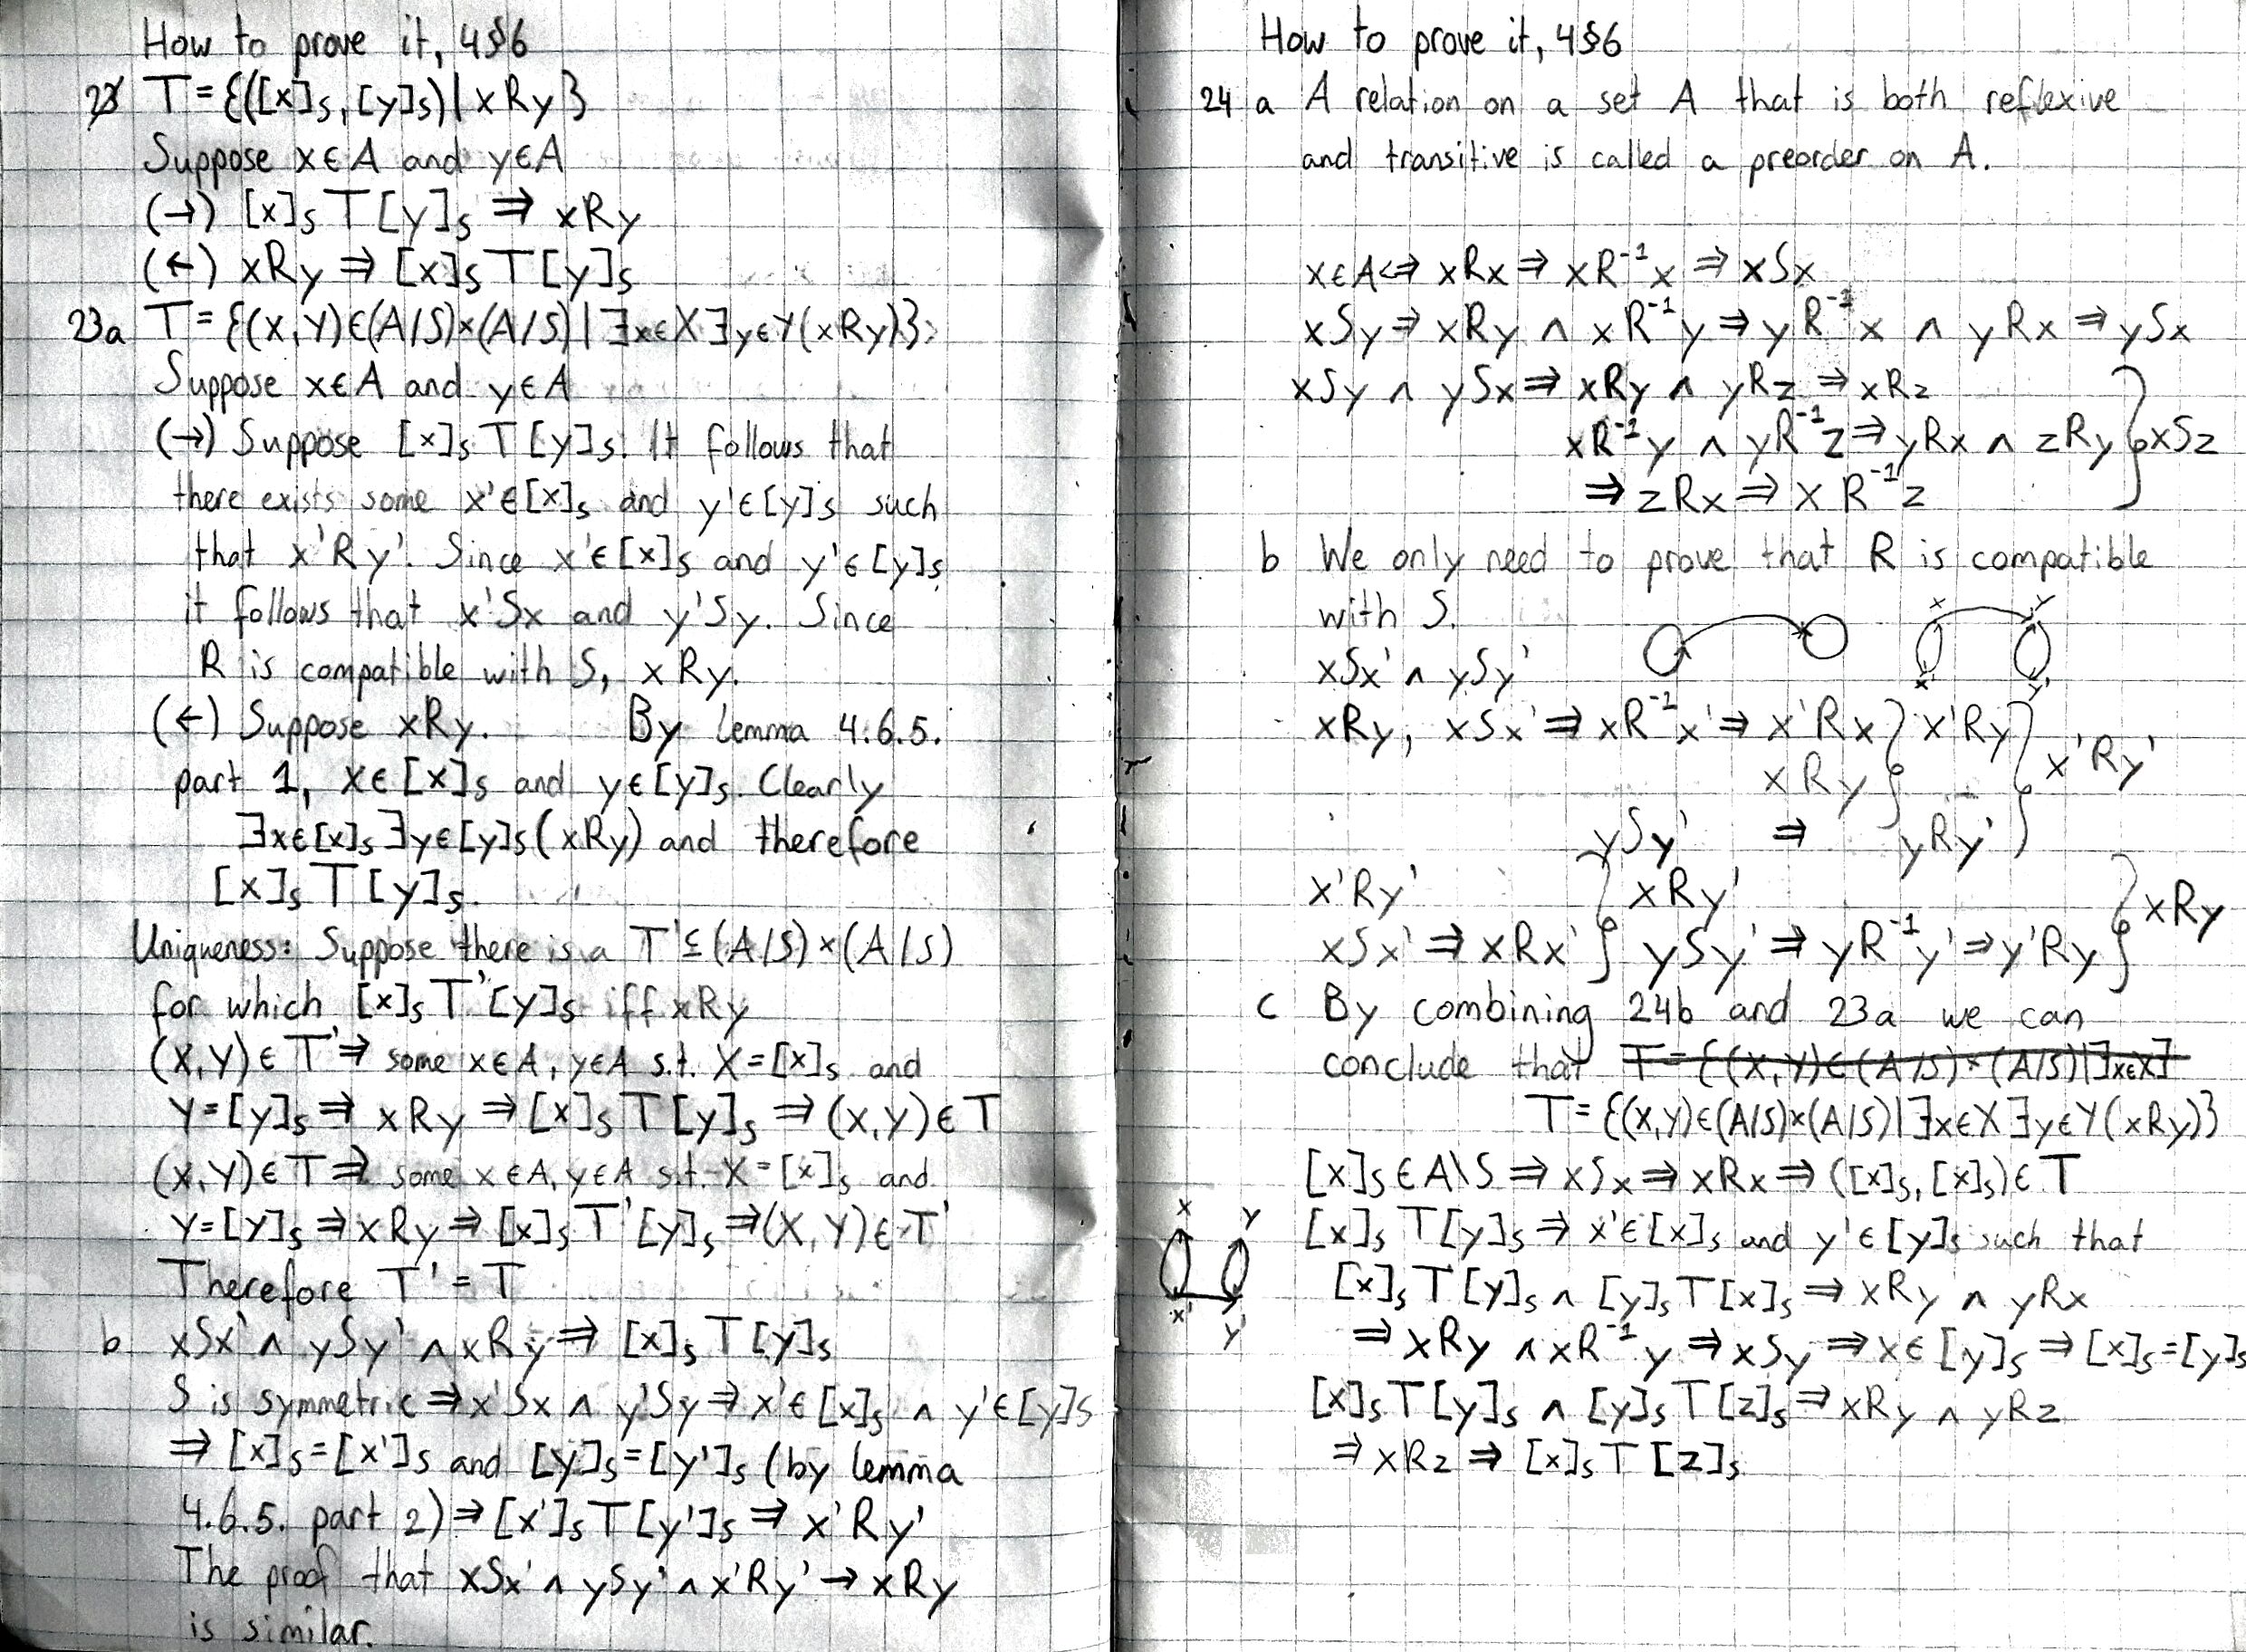 How to prove it, 4§6
23 T = {([x]s, [y]s) | xRy}
Suppose x∈A and y∈A
(→) [x]s T [y]s ⇒ xRy
(←) xRy ⇒ [x]s T [y]s
23a T = {(X,Y)∈(A/S)×(A/S) | ∃x∈X ∃y∈Y(xRy)}
Suppose x∈A and y∈A
(→) Suppose [x]s T [y]s. It follows that
there exists some x'∈[x]s and y'∈[y]s such
that x'Ry'. Since x'∈[x]s and y'∈[y]s
it follows that x'Sx and y'Sy. Since
R is compatible with S, xRy.
(←) Suppose xRy. By lemma 4.6.5.
part 1, x∈[x]s and y∈[y]s. Clearly
∃x∈[x]s ∃y∈[y]s (xRy) and therefore
[x]s T [y]s.
Uniqueness: Suppose there is a T' ⊆ (A/S)×(A/S)
for which [x]s T' [y]s iff xRy
(X,Y)∈T' ⇒ some x∈A, y∈A s.t. X=[x]s and
Y=[y]s ⇒ xRy ⇒ [x]s T [y]s ⇒ (X,Y)∈T
(X,Y)∈T ⇒ some x∈A, y∈A s.t. X=[x]s and
Y=[y]s ⇒ xRy ⇒ [x]s T' [y]s ⇒ (X,Y)∈T'
Therefore T' = T
b xSx' ∧ ySy' ∧ xRy ⇒ [x]s T [y]s
S is symmetric ⇒ x'Sx ∧ y'Sy ⇒ x'∈[x]s ∧ y'∈[y]s
⇒ [x]s=[x']s and [y]s=[y']s (by lemma
4.6.5. part 2) ⇒ [x']s T [y']s ⇒ x'Ry'
The proof that xSx' ∧ ySy' ∧ x'Ry' → xRy
is similar.
How to prove it, 4§6
24 a A relation on a set A that is both reflexive
and transitive is called a preorder on A.
x∈A ⇔ xRx ⇒ xR⁻¹x ⇒ xSx
xSy ⇒ xRy ∧ xR⁻¹y ⇒ yR⁻¹x ∧ yRx ⇒ ySx
xSy ∧ ySx ⇒ xRy ∧ yRz ⇒ xRz
xR⁻¹y ∧ yR⁻¹z ⇒ yRx ∧ zRy } xSz
⇒ zRx ⇒ xR⁻¹z
b We only need to prove that R is compatible
with S. x y
xSx' ∧ ySy' x' y'
xRy, xSx' ⇒ xR⁻¹x' ⇒ x'Rx } x'Ry }
xRy } x'Ry'
ySy' ⇒ yRy'
x'Ry' } xRy' } xRy
xSx' ⇒ xRx' } ySy' ⇒ yR⁻¹y' ⇒ y'Ry }
c By combining 24b and 23a we can
conclude that T = {(X,Y)∈(A/S)×(A/S)|∃x∈X]
T = {(X,Y)∈(A/S)×(A/S) | ∃x∈X ∃y∈Y(xRy)}
[x]s∈A\S ⇒ xSx ⇒ xRx ⇒ ([x]s,[x]s)∈T
x y
[x]s T [y]s ⇒ x'∈[x]s and y'∈[y]s such that
[x]s T [y]s ∧ [y]s T [x]s ⇒ xRy ∧ yRx
x' y'
⇒ xRy ∧ xR⁻¹y ⇒ xSy ⇒ x∈[y]s ⇒ [x]s=[y]s
[x]s T [y]s ∧ [y]s T [z]s ⇒ xRy ∧ yRz
⇒ xRz ⇒ [x]s T [z]s